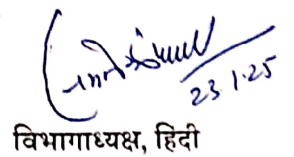 23.1.25
विभागाध्यक्ष, हिदी